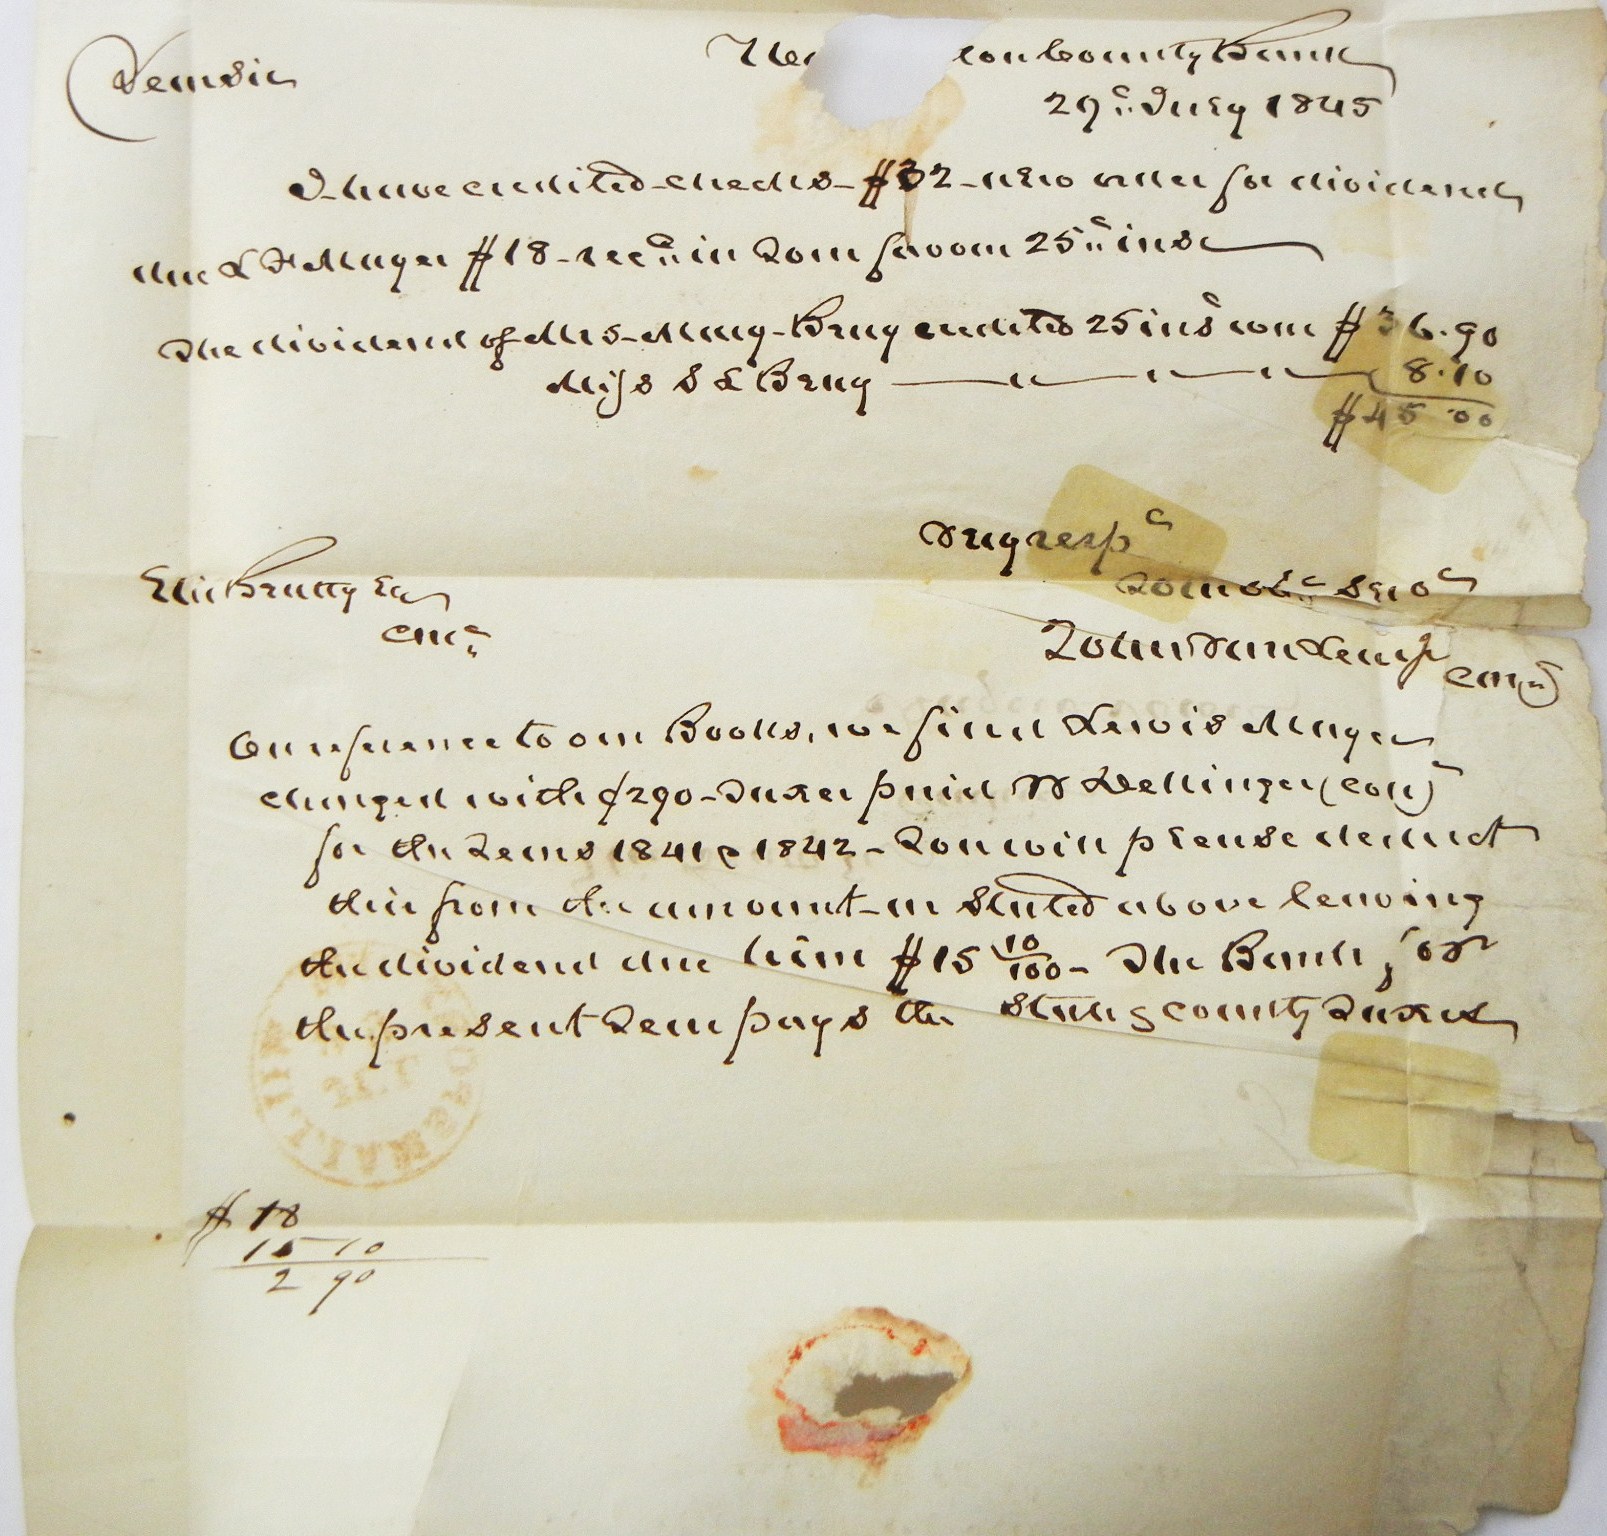 Dear Sir
Wa on County Bank
29th July 1845
I have credited checks - $32 - also order for dividend
due L Mayer $18 - recd in Your favour 25th inst
The dividend of Mrs Mary Bray credited 25 inst was $36.90
Miss S L Bray — " — " — " — 8.10
$45 00
Very respy
Your obt servt
Elie Beatty Esq
Cashr
John Van Lear Jr
Cash
On reference to our Books, we find Lewis Mayer
charged with $2 90 - Taxes paid Dellinger (Coll)
for the Years 1841 & 1842 - You will please deduct
this from the amount as stated above leaving
the dividend due him $15 10/100 - The Bank, for
the present Year pays the State & County Taxes
$ 18
15 10
2 90